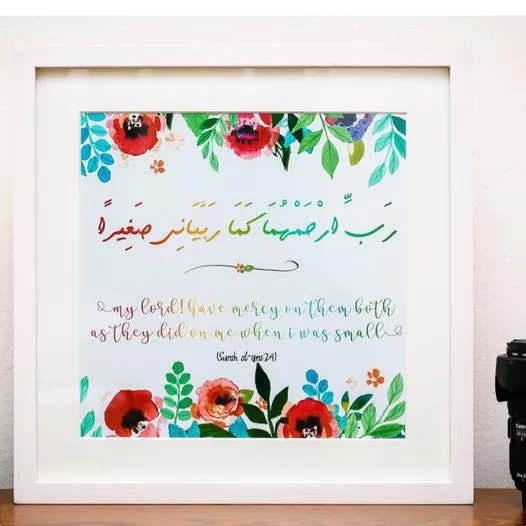 رَبِّ ارْحَمْهُمَا كَمَا رَبَّيَانِي صَغِيرًا
my lord! have mercy on them both
as they did on me when i was small
(Surah al-isra 24)